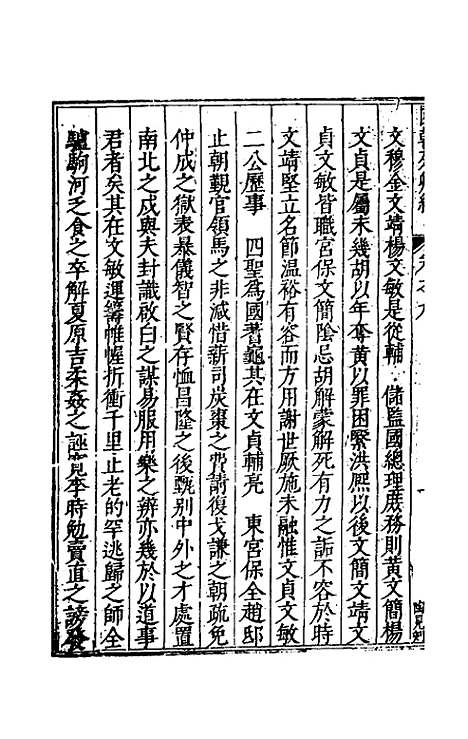 文穆金文靖楊文敏是從輔　儲監國總理庶務則黃文簡楊
文貞是屬未幾胡以年奪黃以罪困繫洪熙以後文簡文靖文
貞文敏皆職宮保文簡陰忌胡解蒙解死有力之詬不容於時
文靖堅立名節溫裕有容而方用謝世厥施未融惟文貞文敏
二公歷事　四聖為國蓍龜其在文貞輔亮　東宮保全趙邸
止朝覲官領馬之非減惜薪司炭棗之費請復戈謙之朝疏免
仲成之獄表暴儀智之賢存恤昌隆之後甄别中外之才處置
南北之戍與夫封識啟白之謀易服用樂之辨亦幾於以道事
君者矣其在文敏運籌帷幄折衝千里止老的罕逃歸之師全
驢駒河乏食之卒解夏原吉柔姦之誣寬李時勉賣直之謗發